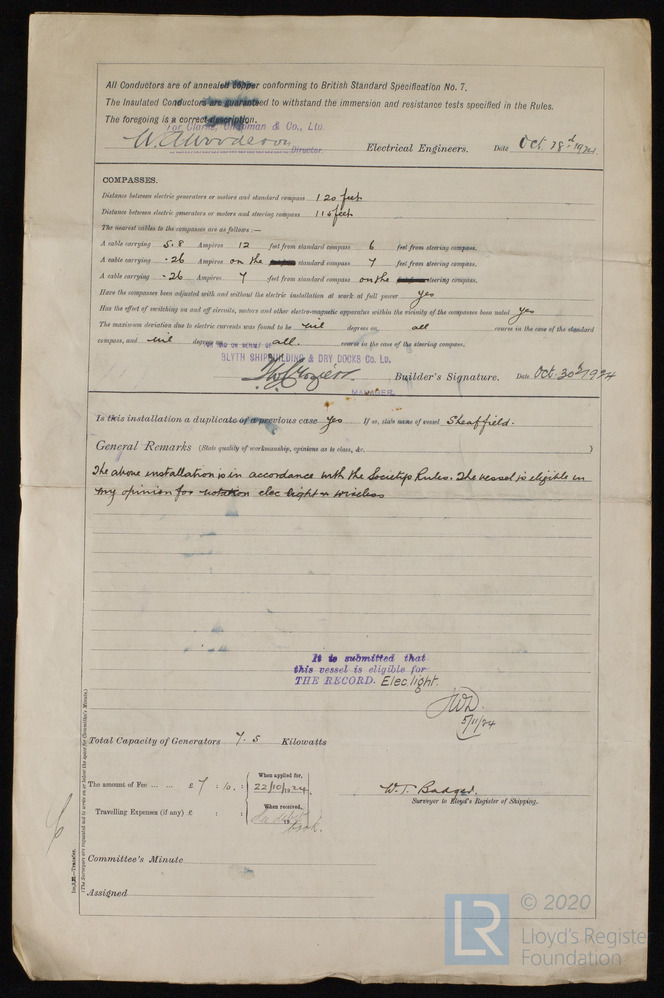 All Conductors are of annealed copper conforming to British Standard Specification No. 7.
The Insulated Conductors are guaranteed to withstand the immersion and resistance tests specified in the Rules.
The foregoing is a correct description.
For Clarke, Chapman & Co., Ltd.
Director. Electrical Engineers. Date Oct. 28th 1924.
COMPASSES.
Distance between electric generators or motors and standard compass 120 feet
Distance between electric generators or motors and steering compass 115 feet
The nearest cables to the compasses are as follows:—
A cable carrying 5.8 Ampères 12 feet from standard compass 6 feet from steering compass.
A cable carrying .26 Ampères on the standard compass 7 feet from steering compass.
A cable carrying .26 Ampères 7 feet from standard compass on the steering compass.
Have the compasses been adjusted with and without the electric installation at work at full power yes
Has the effect of switching on and off circuits, motors and other electro-magnetic apparatus within the vicinity of the compasses been noted yes
The maximum deviation due to electric currents was found to be nil degrees on all course in the case of the standard
compass, and nil degrees on all. course in the case of the steering compass.
FOR AND ON BEHALF OF
BLYTH SHIPBUILDING & DRY DOCKS Co. LD.
Builder's Signature. Date Oct. 30th 1924
MANAGER.
Is this installation a duplicate of a previous case yes If so, state name of vessel Sheaffield.
General Remarks (State quality of workmanship, opinions as to class, &c. )
The above installation is in accordance with the Societys Rules. The vessel is eligible in
my opinion for notation elec light & wireless
It is submitted that
this vessel is eligible for
THE RECORD. Elec. light.
5/11/24
Total Capacity of Generators 7.5 Kilowatts
The amount of Fee ... ... £ 7 : 10. :
When applied for,
22/10/1924.
Travelling Expenses (if any) £ : :
When received,
W. T. Badger.
Surveyor to Lloyd's Register of Shipping.
Committee's Minute
Assigned
(The Surveyors are requested not to write on or below the space for Committee's Minute.)
© 2020
LR
Lloyd's Register
Foundation